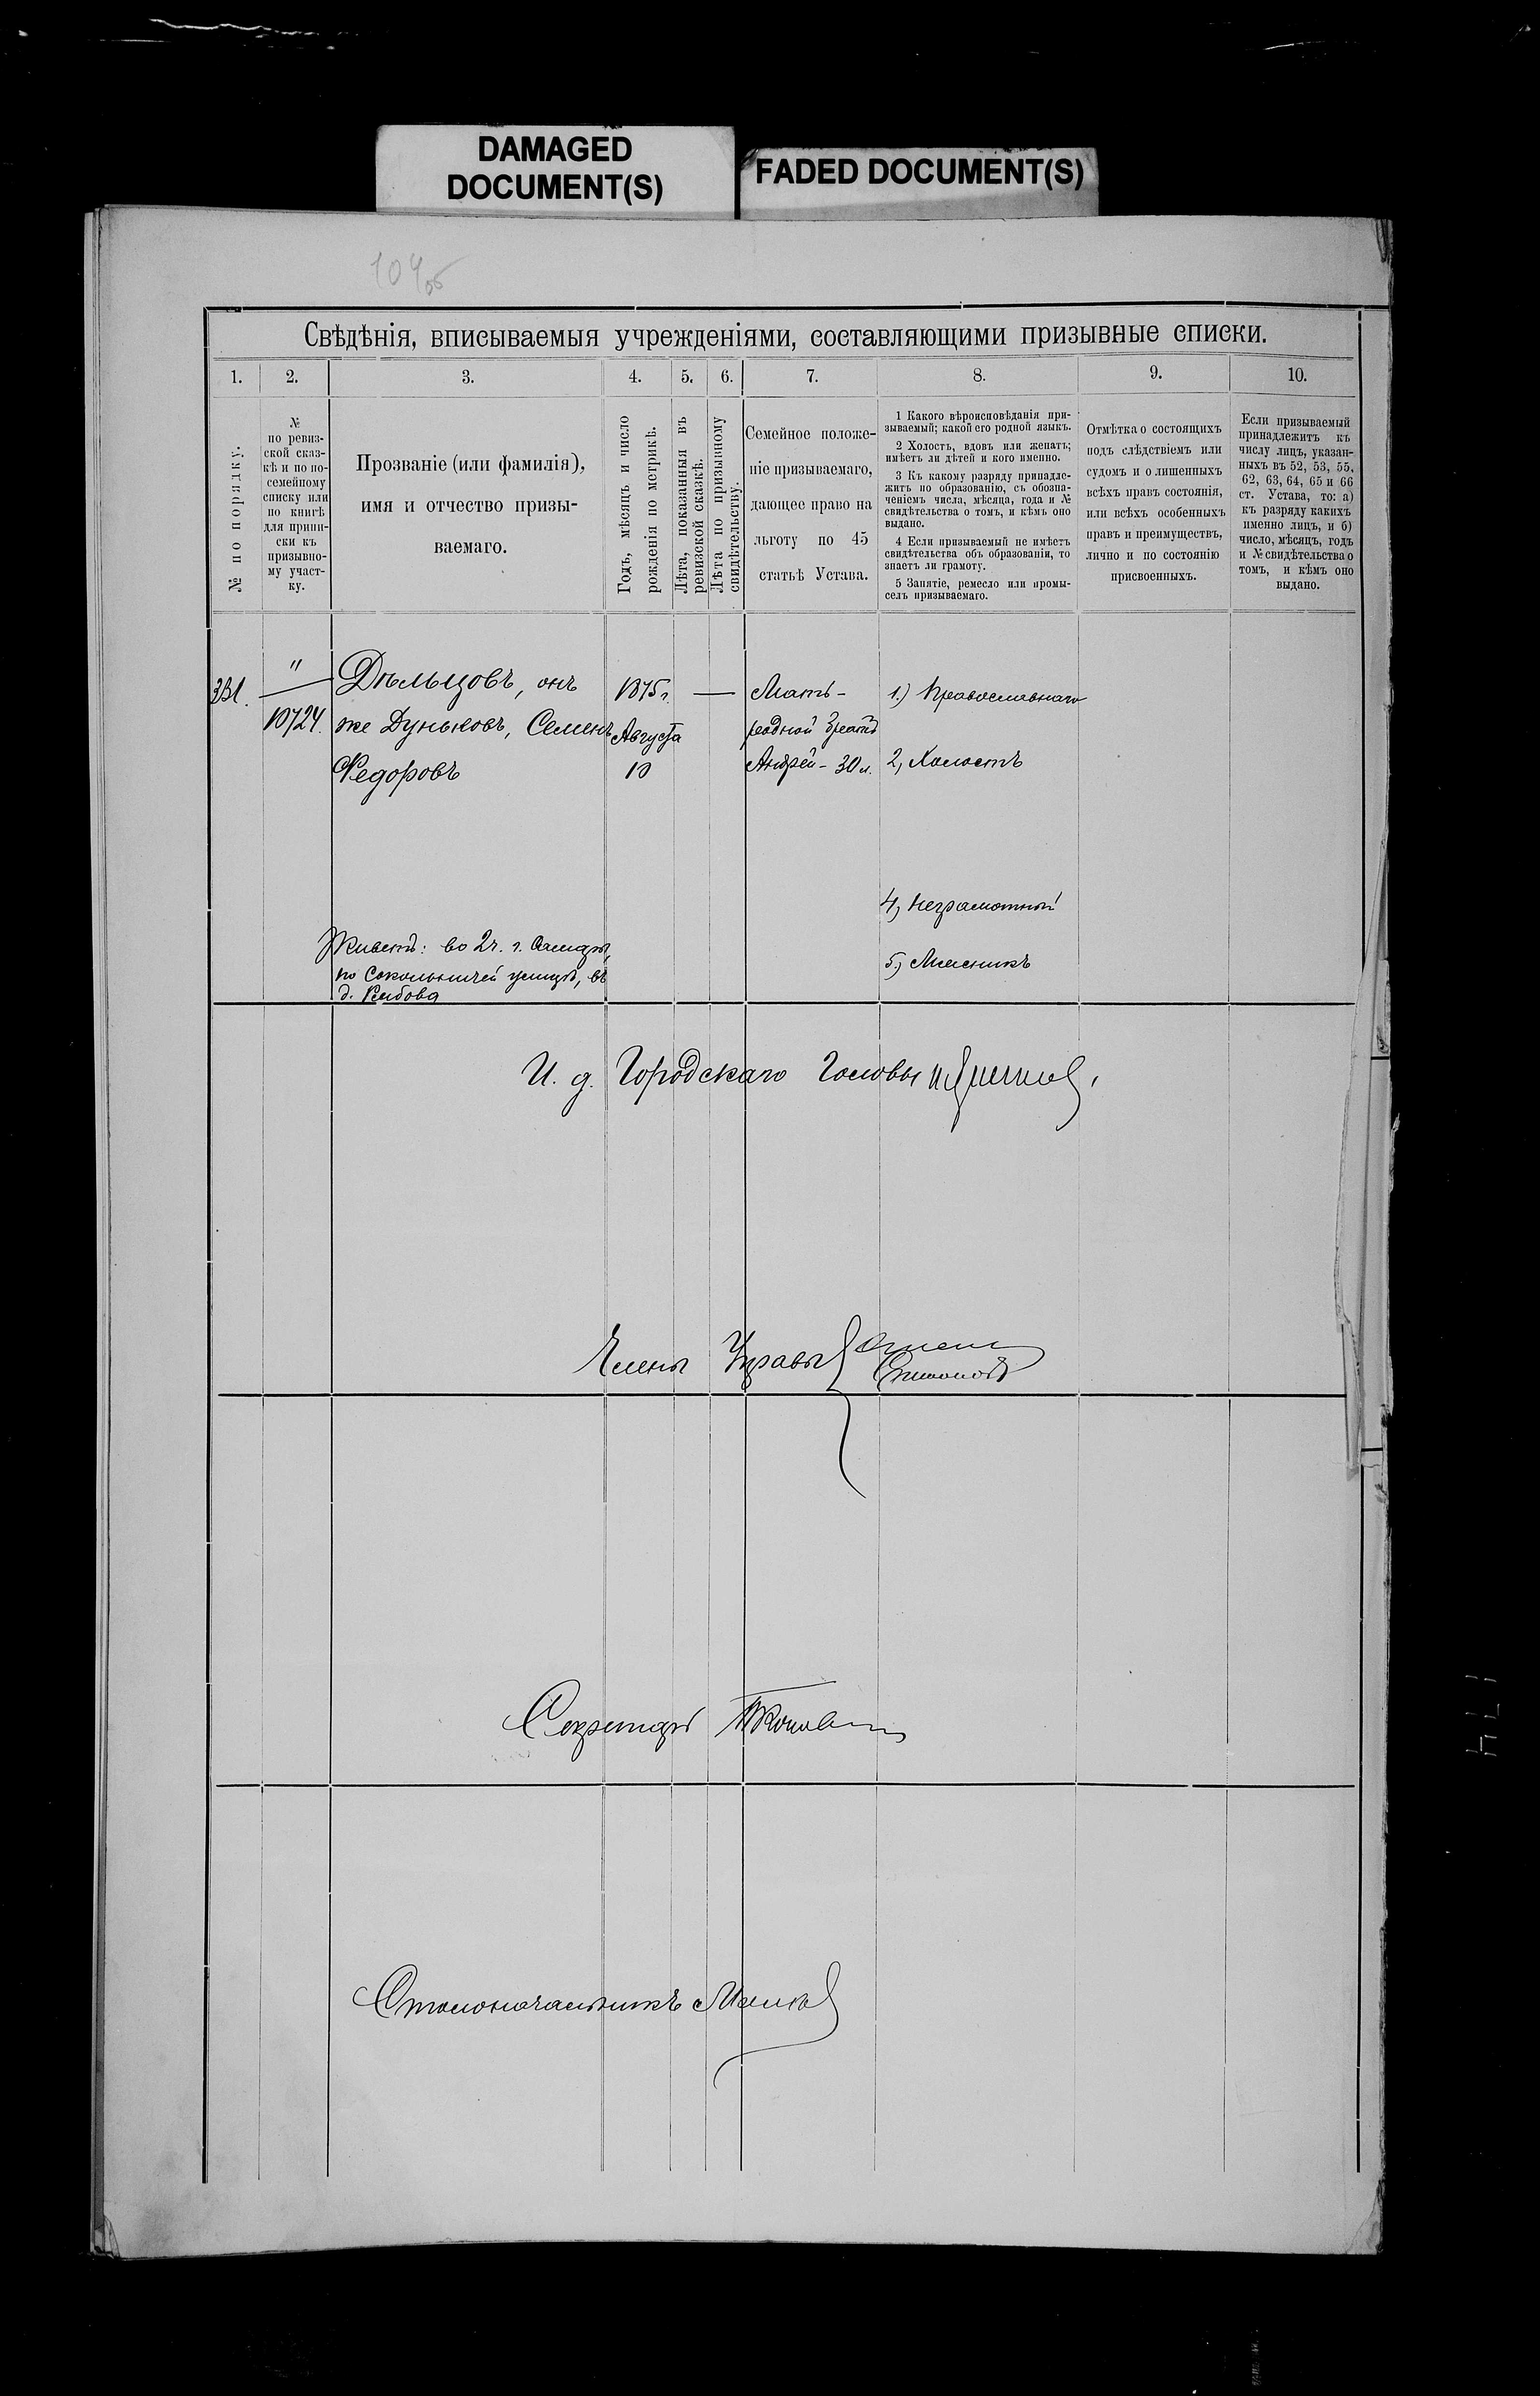 DAMAGED
DOCUMENT(S)
FADED DOCUMENT(S)
104 об
Свѣдѣнія, вписываемыя учрежденіями, составляющими призывные списки.
1. 2. 3. 4. 5. 6. 7. 8. 9. 10.
№ по порядку.
№
по ревиз-
ской сказ-
кѣ и по по-
семейному
списку или
по книгѣ
для припи-
ски къ
призывно-
му участ-
ку.
Прозваніе (или фамилія),
имя и отчество призы-
ваемаго.
Годъ, мѣсяцъ и число
рожденія по метрикѣ.
Лѣта, показанныя въ
ревизской сказкѣ.
Лѣта по призывному
свидѣтельству.
Семейное положе-
ніе призываемаго,
дающее право на
льготу по 45
статьѣ Устава.
1 Какого вѣроисповѣданія при-
зываемый; какой его родной языкъ.
2 Холостъ, вдовъ или женатъ;
имѣетъ ли дѣтей и кого именно.
3 Къ какому разряду принадле-
житъ по образованію, съ обозна-
ченіемъ числа, мѣсяца, года и №
свидѣтельства о томъ, и кѣмъ оно
выдано.
4 Если призываемый не имѣетъ
свидѣтельства объ образованіи, то
знаетъ ли грамоту.
5 Занятіе, ремесло или промы-
селъ призываемаго.
Отмѣтка о состоящихъ
подъ слѣдствіемъ или
судомъ и о лишенныхъ
всѣхъ правъ состоянія,
или всѣхъ особенныхъ
правъ и преимуществъ,
лично и по состоянію
присвоенныхъ.
Если призываемый
принадлежитъ къ
числу лицъ, указан-
ныхъ въ 52, 53, 55,
62, 63, 64, 65 и 66
ст. Устава, то: а)
къ разряду какихъ
именно лицъ, и б)
число, мѣсяцъ, годъ
и № свидѣтельства о
томъ, и кѣмъ оно
выдано.
331.
"
10724.
Дѣльцовъ, онъ
же Дуньковъ, Семенъ
Федоровъ
1875 г.
Августа
10
—
Мать -
родной братъ
Андрей - 30 л.
1.) Православнаго
2, Холостъ
4, Неграмотный
5.) Мясникъ
Живетъ: во 2 ч. г. Самары,
по Сокольничей улицѣ, въ
д.
И. д. Городскаго Головы
Члены Управы
Секретарь
Столоначальникъ